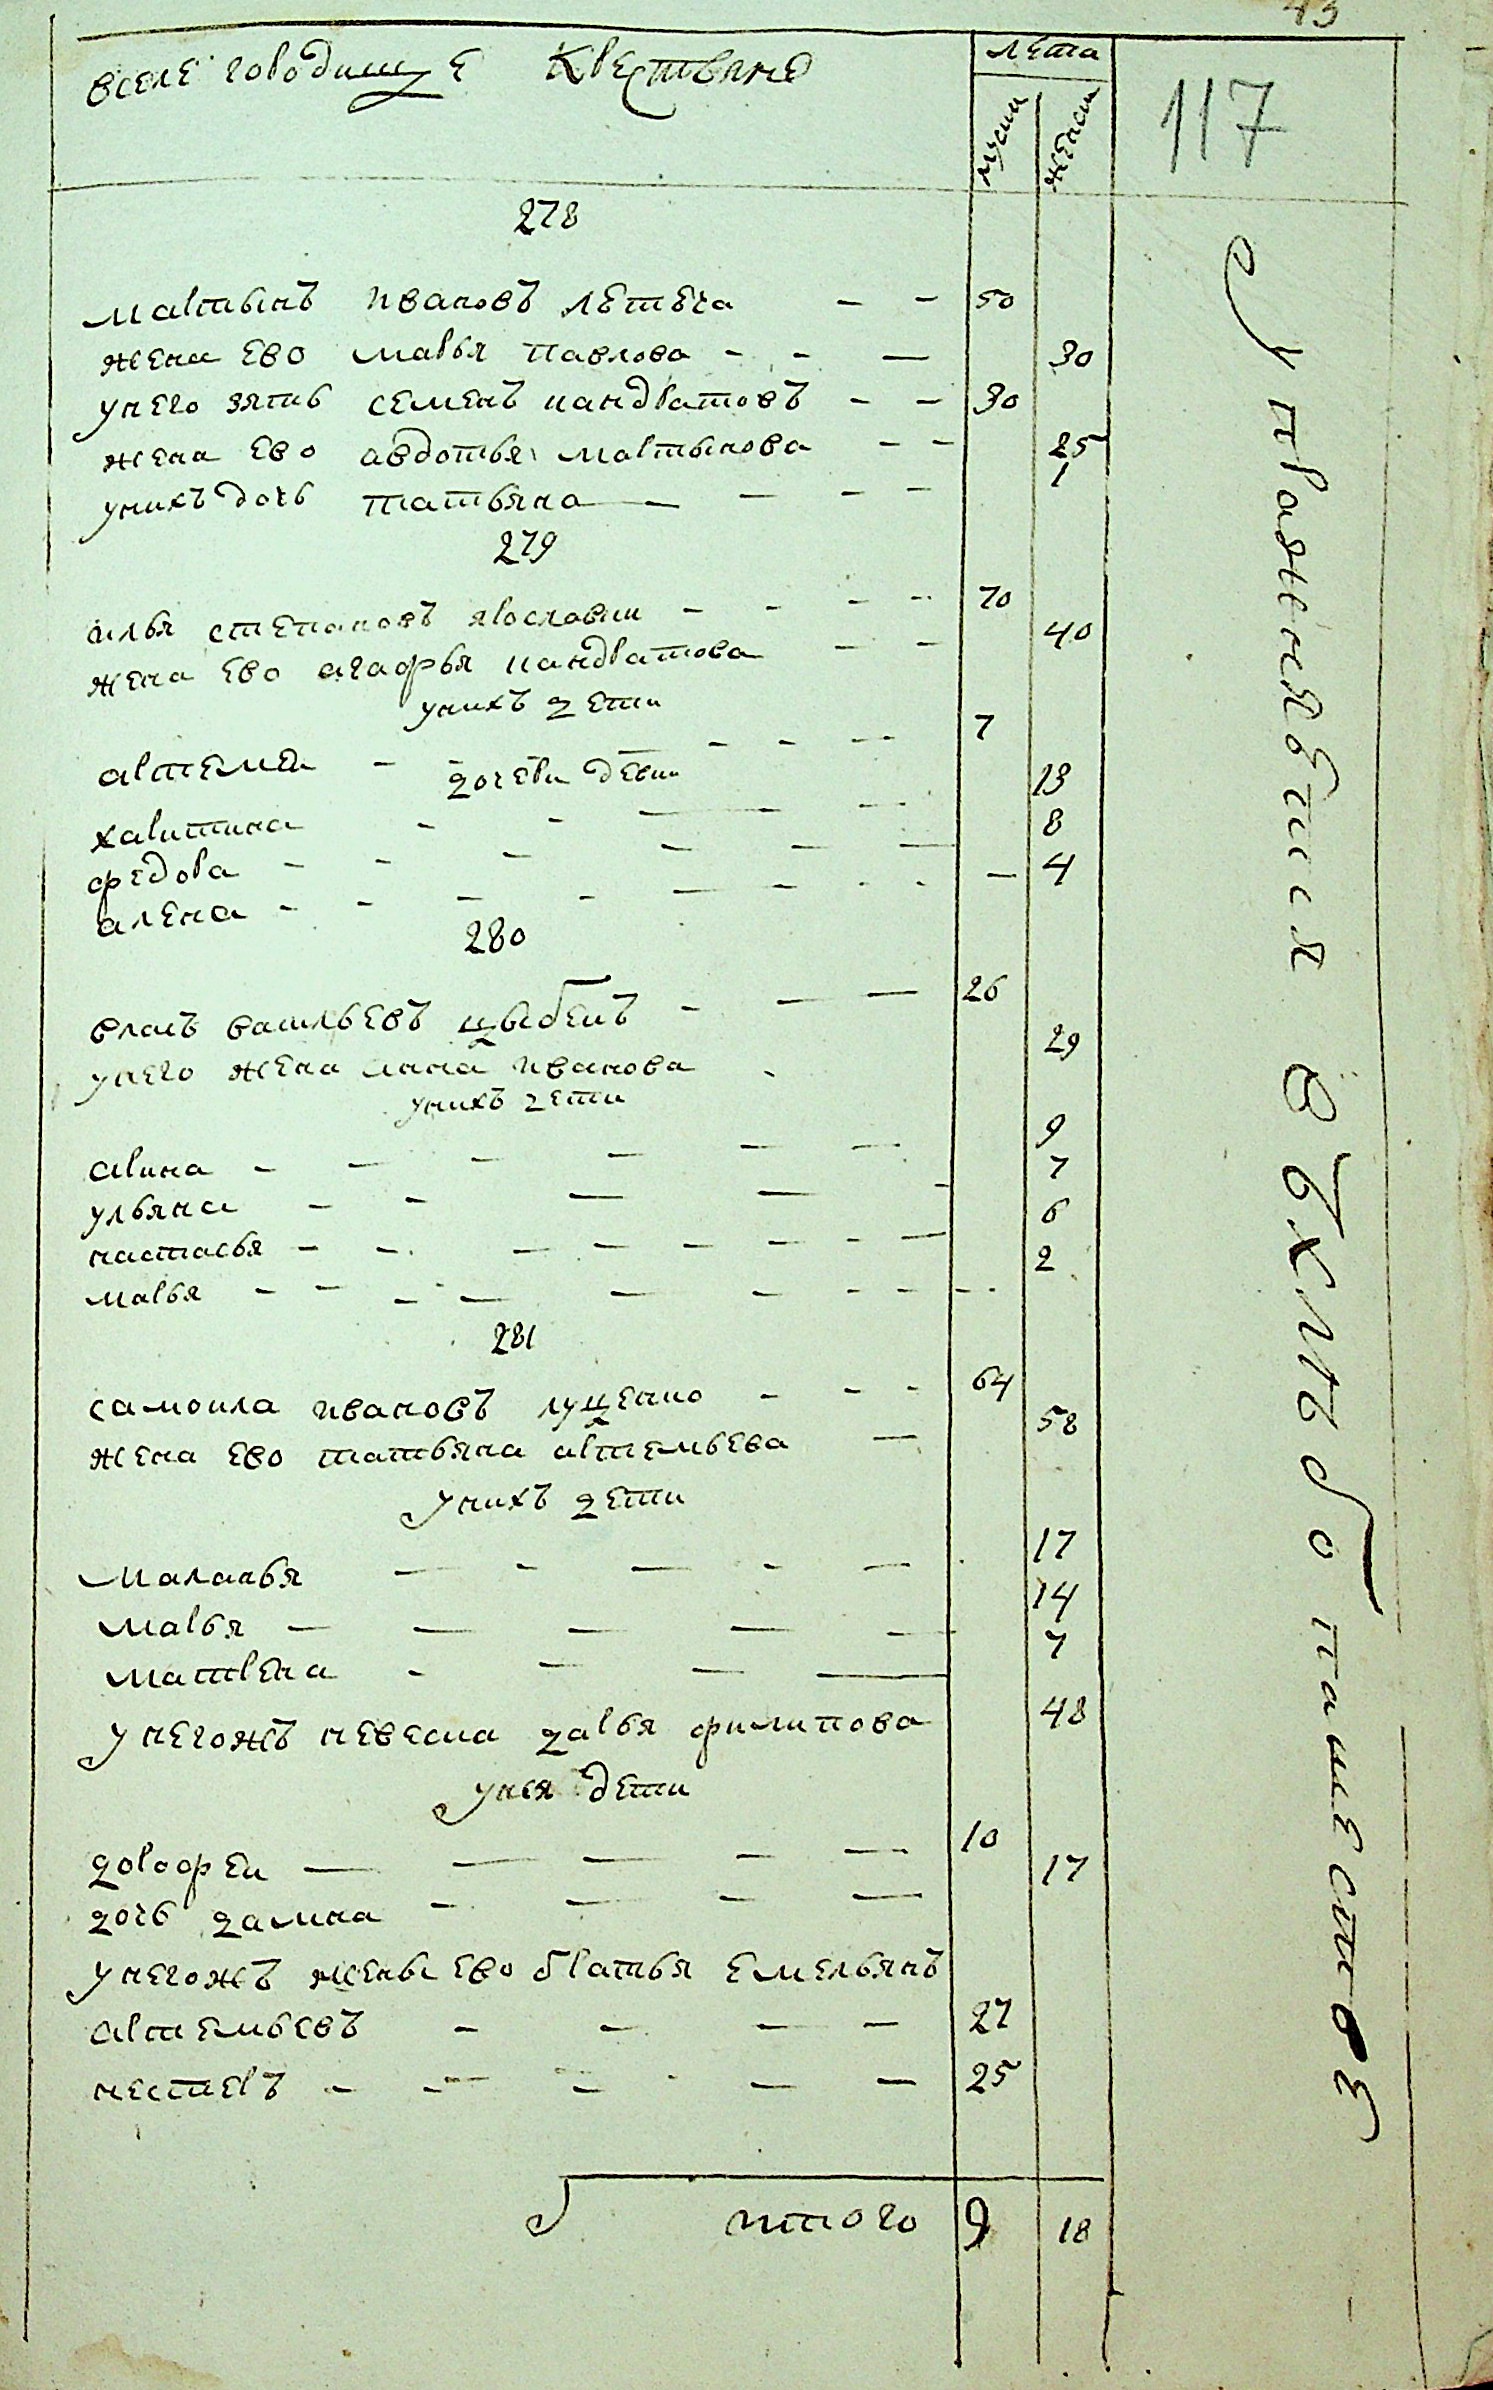 43
вселе городище Крестьяне
лета
муски
женски
117
278
мартынъ ивановъ летега 50
жена ево марья павлова 30
унего зять семенъ кандратовъ 30
жена ево авдотья мартынова 25
унихъ дочь татьяна 1
279
илья степановъ ярославки 70
жена ево агафья кандратова 40
унихъ дети
артемеи 7
дочери девки
харитина 13
федора 8
алена 4
280
власъ васильевъ цыбенъ 26
унего жена анна иванова 29
унихъ дети
арина 9
ульяна 7
настасья 6
марья 2
281
самоила ивановъ луценко 64
жена ево татьяна артемьева 58
унихъ дети
маланья 17
марья 14
матрена 7
унегожъ невеска дарья филипова 48
унея дети
дорофеи 10
дочь дамна 17
унегожъ жены ево братья емельянъ
артемьевъ 27
нестеръ 25
итого 9 18
упражняются в хлебопашестве